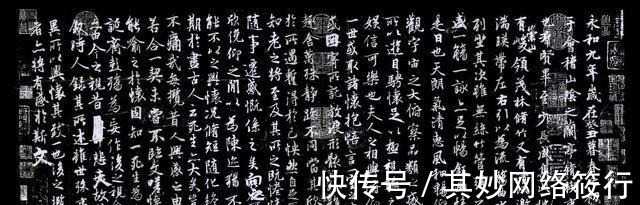 永和九年歲在癸丑暮
于會稽山陰之蘭亭
也羣賢畢至少長咸
有崇山峻領茂林脩竹又有
湍暎帶左右引以為流
列坐其次雖無絲竹管
盛一觴一詠亦足以暢
是日也天朗氣清惠風
觀宇宙之大俯察品類
所以遊目騁懷足以極
娛信可樂也夫人之相與
一世或取諸懷抱悟言
因寄所託放浪
趣舍萬殊靜躁不同當其欣
於所遇暫得於己怏然自足
知老之將至及其所之既惓情
隨事遷感慨係之矣向
欣俛仰之閒以為陳迹猶不
能不以之興懷況脩短隨化
期於盡古人云死生亦大矣豈
不痛哉每攬昔人興感之由
若合一契未嘗不臨文嗟悼
能喻之於懷固知一死生為
誕齊彭殤為妄作後之視
由今之視昔悲夫故
敘時人錄其所述雖世殊事
異所以興懷其致一也後之攬
者亦將有感於斯文
快传号/其妙网络筱行